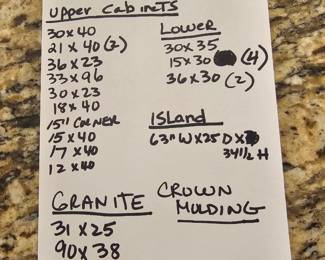 Upper Cabinets
30 x 40
21 x 40 (2)
36 x 23
33 x 96
30 x 23
18 x 40
15" CORNER
15 x 40
17 x 40
12 x 40
Lower
30 x 35
15 x 30 (4)
36 x 30 (2)
Island
63" W x 25 D x
34 1/2 H
GRANITE
31 x 25
90 x 38
CROWN
MOLDING